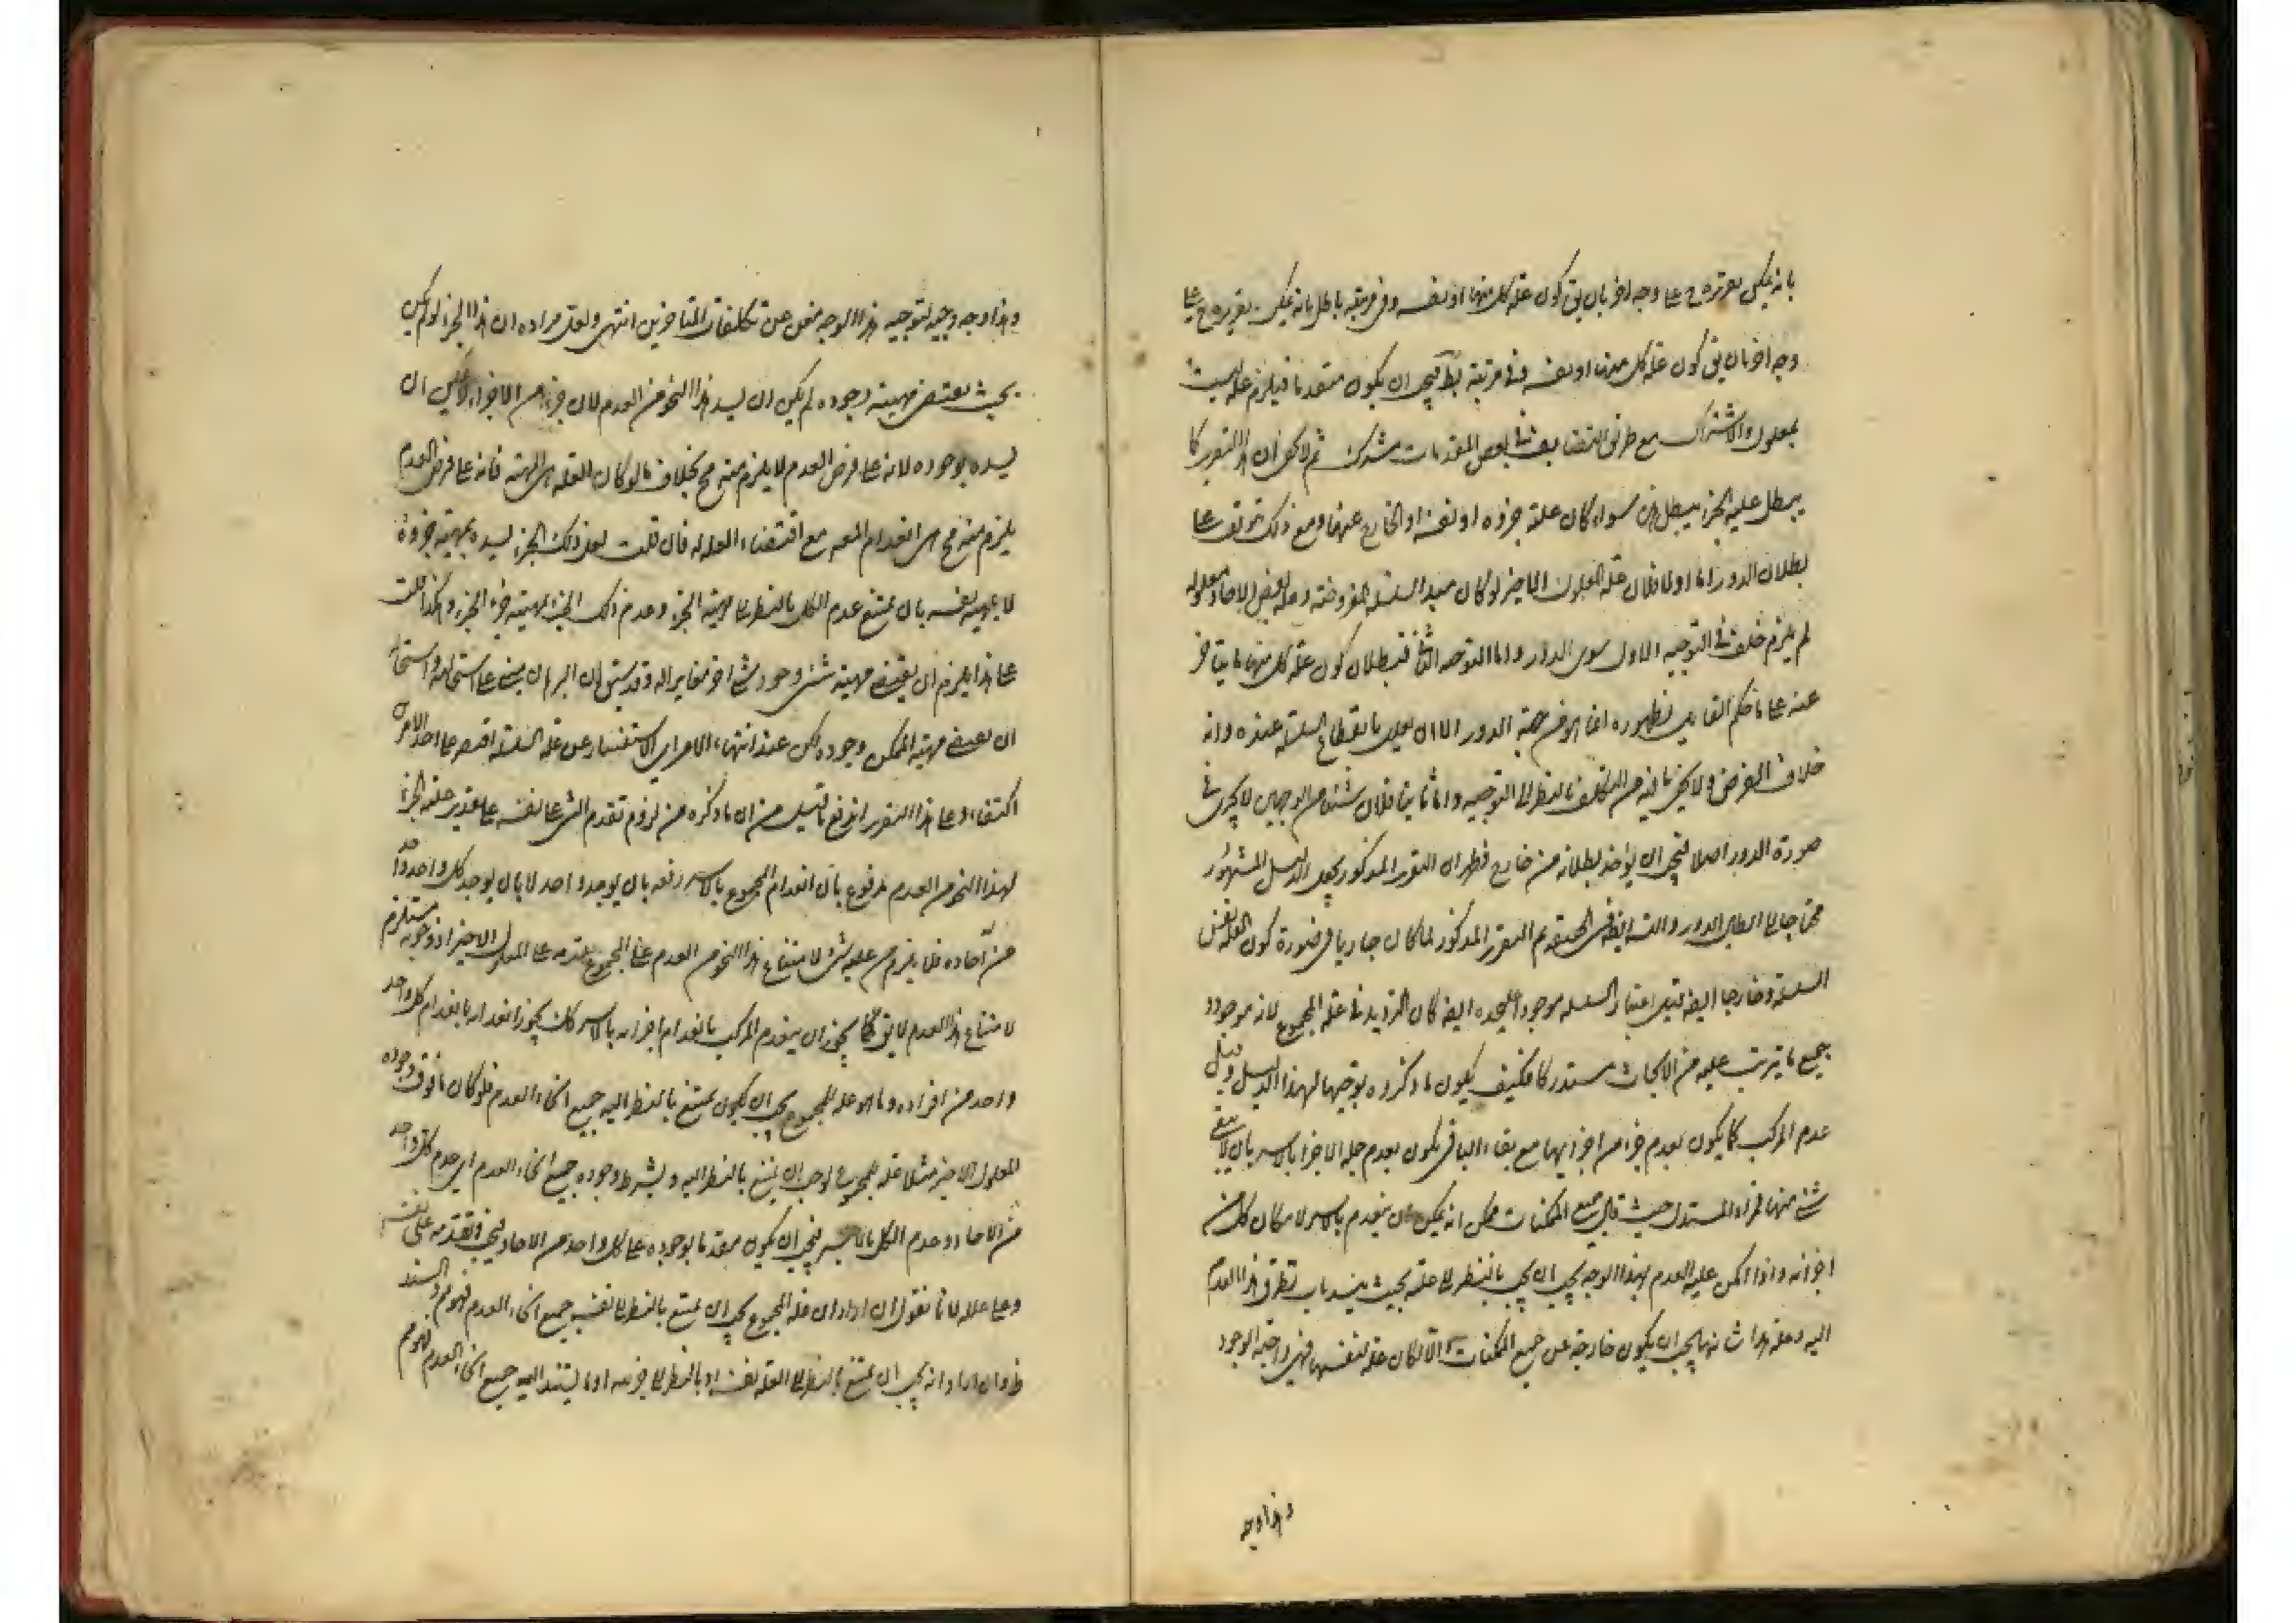 بانه يمكن تقريره ح على وجه اخر بان يق كون علة كل منهما او نفسه وفى مرتبته باطل بانه يمكن تقريره ح على
وجه اخر بان يق كون علة كل منهما او نفسه وفى مرتبته بط فيجب ان يكون متقدما فيلزم علة ليست
بمعلول والاشتراك مع طريق التضايف فى بعض المقدمات مشترك ثم لا يخفى ان هذا التقرير كما
يبطل علية الجزء يبطل سواء كان علة جزؤه او نفسه او الخارج عنهما ومع ذلك يتوقف على
بطلان الدور اما اولا فلان علة المعلول الاخير لو كان مبدا السلسلة المفروضة وعلة بعض الاحاد معلوله
لم يلزم خلف فى التوجيه الاول سوى الدور واما التوجيه الثانى فبطلان كون علة كل منهما ما يتاخر
عنه على ما حكم القايل بظهوره انما هو من جهة الدور الا ان يعلل بانقطاع السلسلة عنده وانه
خلاف الفرض ولا يخفى ما فيه من التكلف بالنظر الى التوجيه واما ثانيا فلان شيئا من الوجهين لا يجرى فى
صورة الدور اصلا فيجب ان يؤخذ بطلانه من خارج فظهر ان التقرير المذكور يجعل الدليل المشهور
محتاجا الى ابطال الدور والتس ايضا فى الحقيقة ثم التقرير المذكور لما كان جاريا فى صورة كون العلة نفس
السلسلة وخارجا ايضا اعتبار السلسلة موجودا عليحده ايضا كان الترديد فى علة المجموع لانه موجود و
جميع ما يترتب عليه من الابحاث مستدركا فكيف يكون ما ذكروه توجيها لهذا الدليل وقيل
عدم المركب كما يكون بعدم جزء من اجزائها مع بقاء الباقى يكون بعدم جملة الاجزاء بالاسر بان لا يبقى
شئ منها فمراد المستدل حيث قال جميع الممكنات ممكن انه يمكن ان ينعدم بالاسر لامكان كل من
اجزائه واذا امكن عليه العدم بهذا الوجه يجب ان يجب بالنظر الى علته بحيث ينسد باب تطرق هذا العدم
اليه وعلة هذا شانها يجب ان يكون خارجة عن جميع الممكنات والا لكان علة لنفسها فهى واجبة الوجود
وهذا وجه
وهذا وجه وجيه لتوجيه هذا الوجه مغن عن تكلفات المتاخرين انتهى ولعل مراده ان هذا الجزء لو لم يكن
بحيث يقتضى مهيته وجوده لم يكن ان ليسد هذا النحو من العدم لان جزءا من الاجزاء لا يمكن ان
ليسده بوجوده لانه على فرض العدم لا يلزم منه مح بخلاف ما لو كان العلة هى المهية فانه على فرض العدم
يلزم منه مح هى انعدام المعلول مع اقتضاء العلة له فان قلت لعل ذلك الجزء ليسده بمهية جزؤه
لا بمهية نفسه بان يمتنع عدم الكل بالنظر الى مهية الجزء وعدم ذلك الجزء لمهية جزء الجزء وهكذا قلت
على هذا يلزم ان يقتضى مهية شئ وجود شئ اخر مغاير له وقد سبق ان البرهان مبنى على استحالته واستحالة
ان يقتضى مهية الممكن وجوده لكن عند انتهاء الامر الى الاستفسار عن علة السلسلة اقتصر على احد الامرين
اكتفاء وعلى هذا التقرير اندفع ما قيل من ان ما ذكره من لزوم تقدم الشئ على نفسه على تقدير علية الجزء
لهذا النحو من العدم مدفوع بان انعدام المجموع بالاسر رفعه بان يوجد واحد لا بان يوجد كل واحد واحد
من آحاده فلا يلزم من علية شئ لامتناع هذا النحو من العدم على المجموع تقدمه على المعلول الاخير اذ وجوبه مستلزم
لامتناع هذا العدم لا يق كما يجوز ان ينعدم المركب بانعدام اجزائه بالاسر كك يجوز انعدامه بانعدام كل واحد
واحد من افراده وما هو علة المجموع يجب ان يكون يمتنع بالنظر اليه جميع انحاء العدم فلو كان ما فوق وجوده
المعلول الاخير مثلا علة للمجموع لوجب ان يمتنع بالنظر اليه وبشرط وجوده جميع انحاء العدم اى عدم كل واحد
من الاحاد وعدم الكل بالاسر فيجب ان يكون متقدما بوجوده على كل واحد من الاحاد فيجب تقدمه على نفسه
وعلى علله لانا نقول ان اراد ان علة المجموع يجب ان يمتنع بالنظر الى نفسه جميع انحاء العدم فهو مم والسند
ظ وان اراد انه يجب ان يمتنع بالنظر الى العلة نفسه او بالنظر الى جزئه او ما يستند اليه جميع انحاء العدم فهو مم